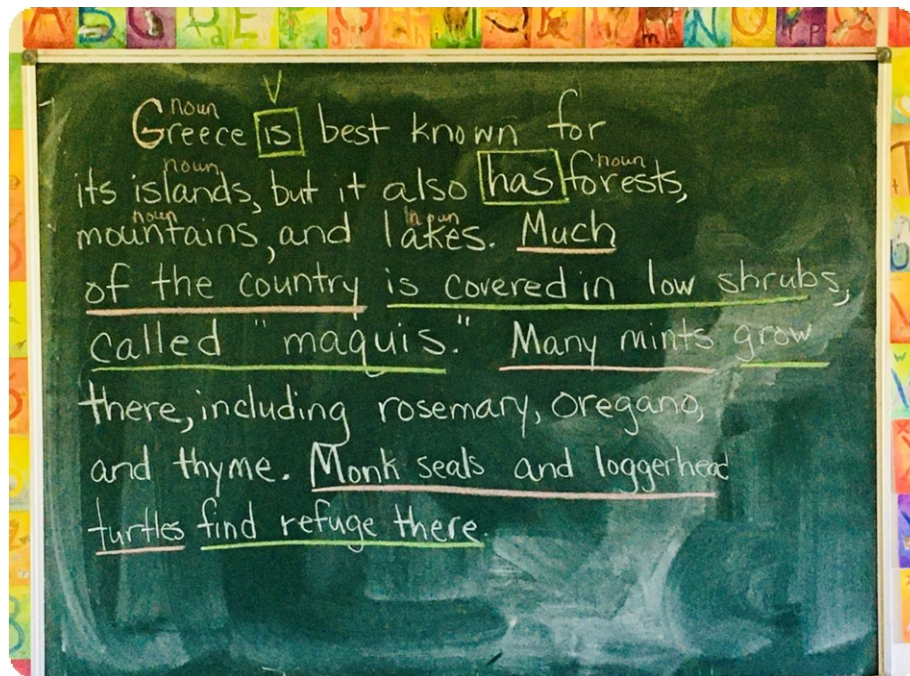 V
noun
Greece is best known for
noun noun
its islands, but it also has forests,
noun noun
mountains, and lakes. Much
of the country is covered in low shrubs,
called "maquis." Many mints grow
there, including rosemary, oregano,
and thyme. Monk seals and loggerhead
turtles find refuge there.